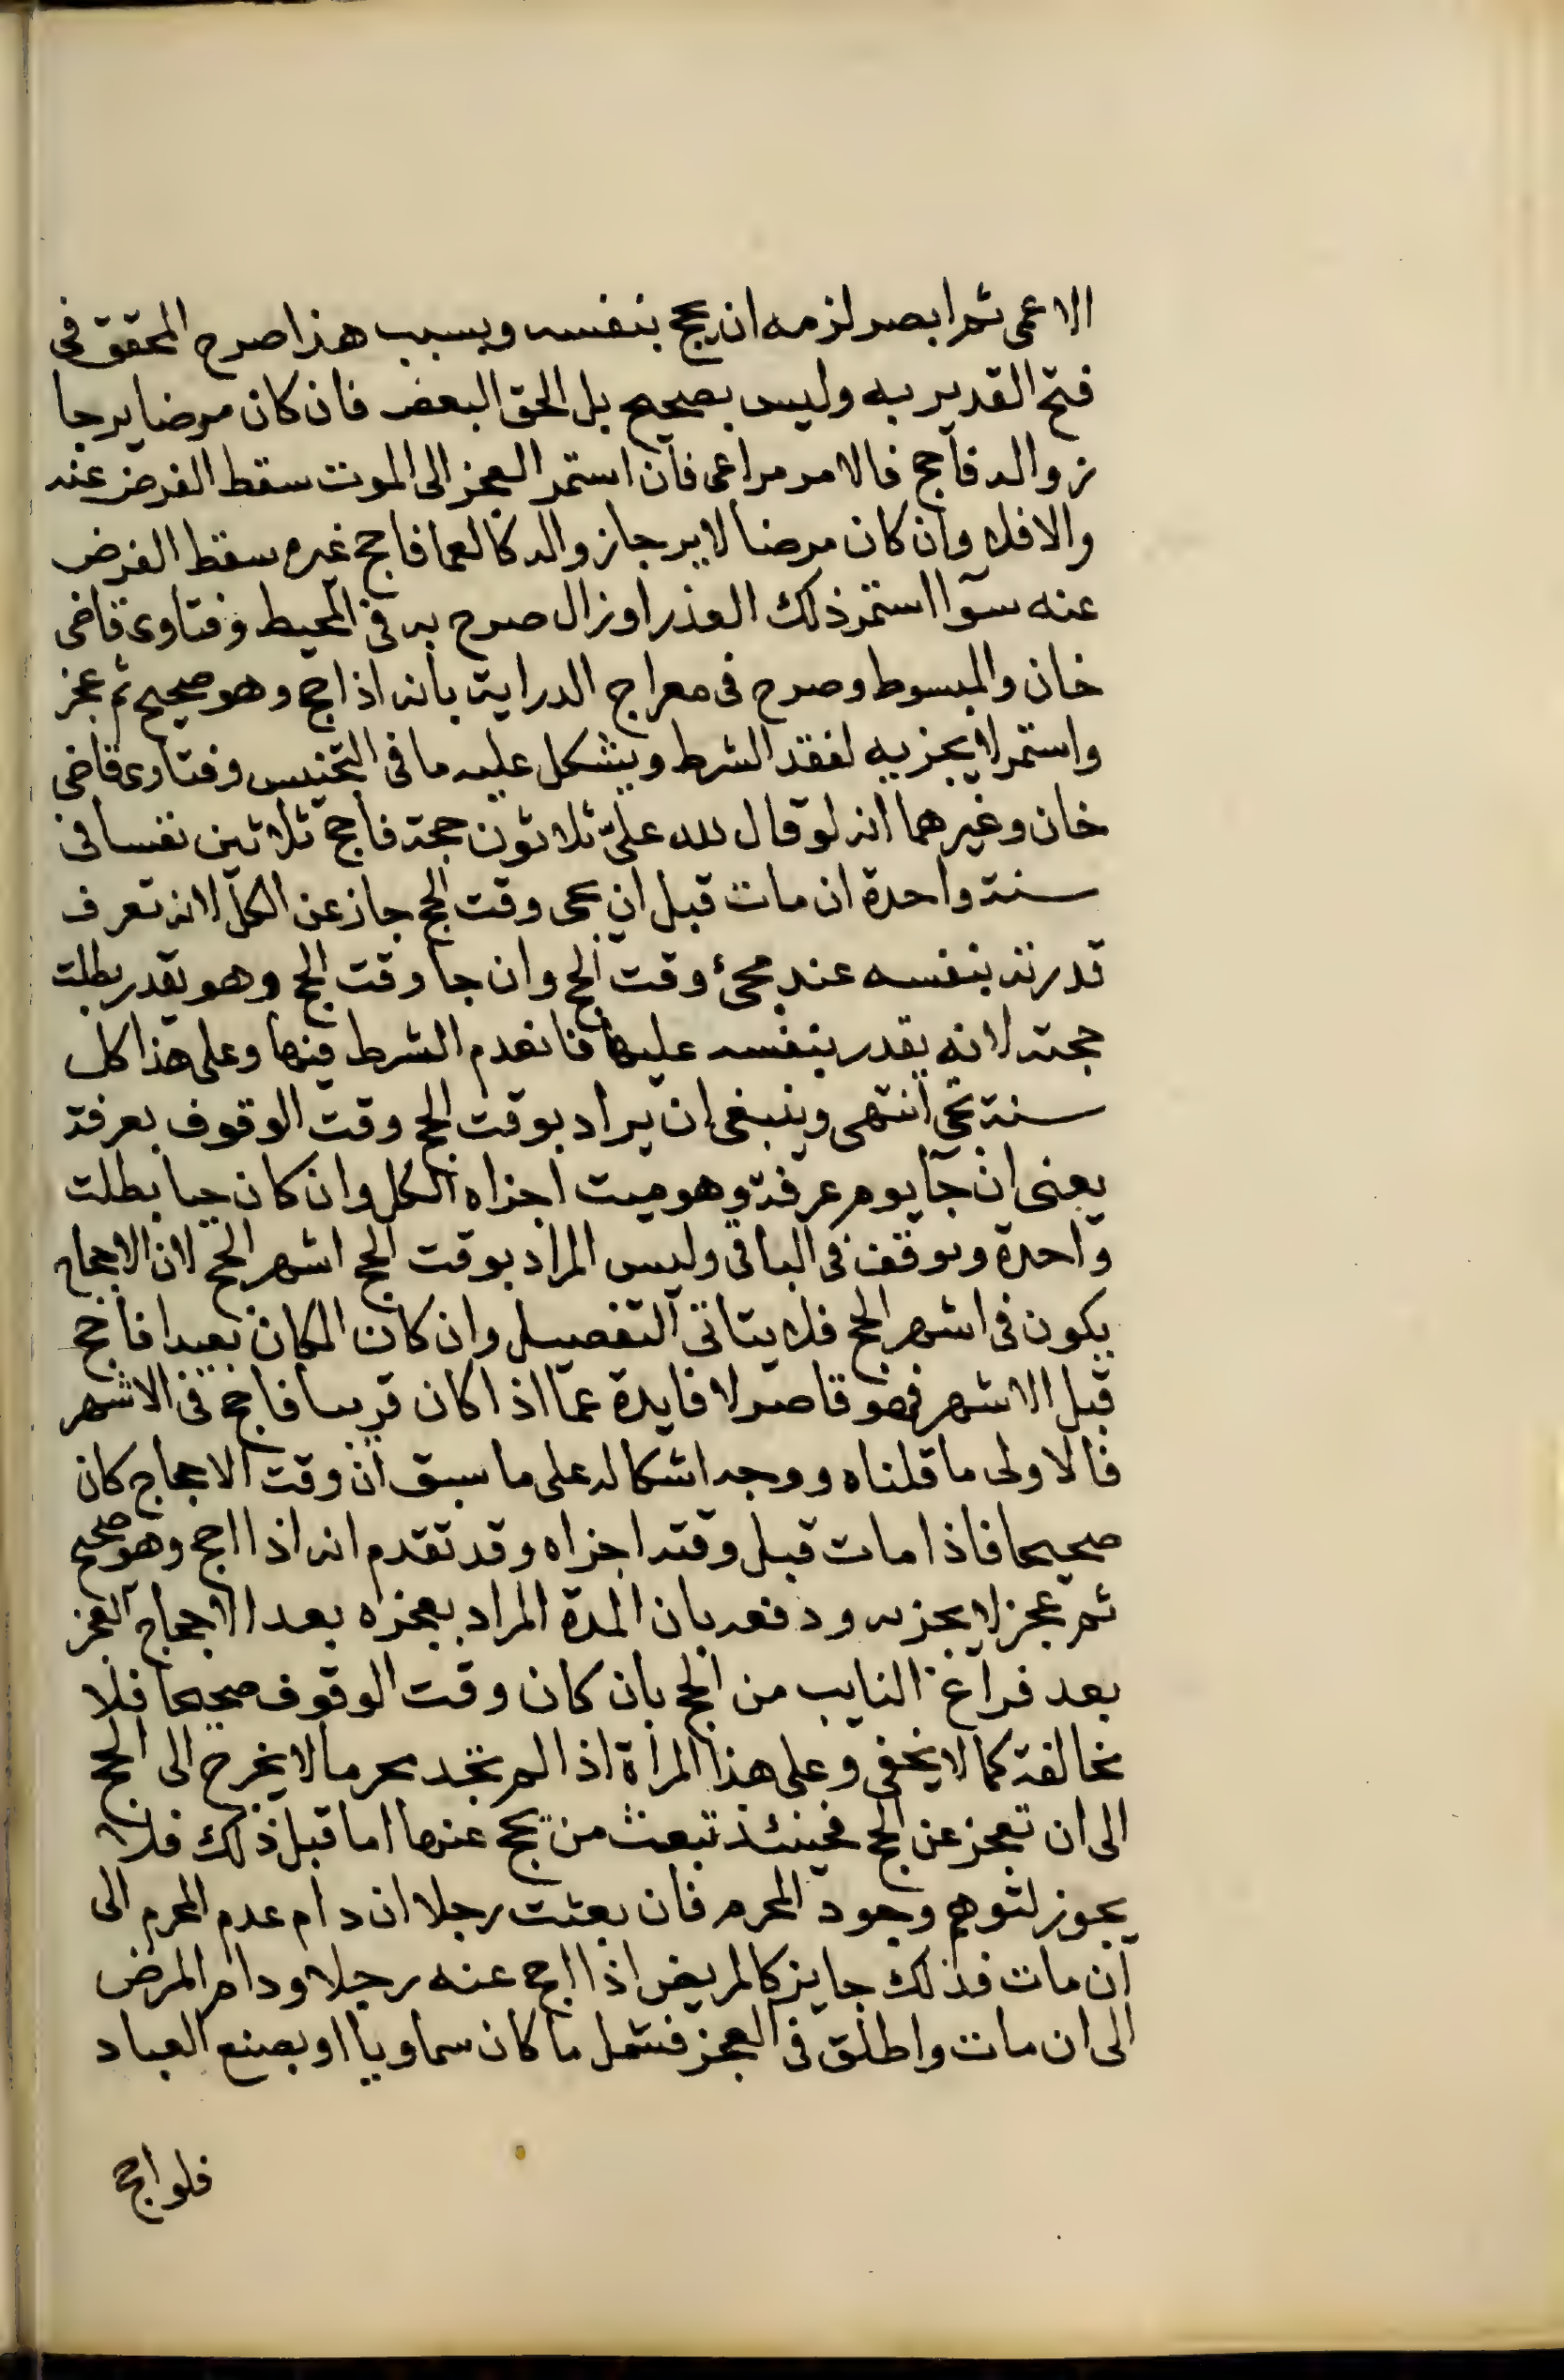 الاعمى ثم ابصر لزمه ان يحج بنفسه وبسبب هذا صرح المحقق في
فتح القدير به وليس بصحيح بل الحق البعض فان كان مرضا يرجا
زواله فاحج فالامر مراعى فان استمر العجز الى الموت سقط الفرض عنه
والا فلا وان كان مرضا لا يرجا زواله كالعما فاحج غيره سقط الفرض
عنه سوآ استمر ذلك العذر او زال صرح به في المحيط وفتاوى قاضى
خان والمبسوط وصرح في معراج الدراية بانه اذا حج وهو صحيح ثم عجز
واستمر لا يجزيه لفقد الشرط ويشكل عليه ما في التجنيس وفتاوى قاضى
خان وغيرهما انه لو قال لله علىّ ثلاثون حجة فاحج ثلاثين نفسا في
سنة واحدة ان مات قبل ان يجى وقت الحج جاز عن الكل لانه تعرف
قدرته بنفسه عند مجئ وقت الحج وان جا وقت الحج وهو يقدر بطلت
حجته لانه يقدر بنفسه عليها فانعدم الشرط فيها وعلى هذا كل
سنة تجي انتهى وينبغى ان يراد بوقت الحج وقت الوقوف بعرفة
يعنى ان جآ يوم عرفة وهو ميت اجزاه الكل وان كان حيا بطلت
واحدة وتوقف في الباقى وليس المراد بوقت الحج اشهر الحج لان الاحجاج
يكون في اشهر الحج فلا يتاتى التفصيل وان كان المكان بعيدا فاحج
قبل الاشهر فهو قاصر لا فايدة عمّا اذا كان قريبا فاحج في الاشهر
فالاولى ما قلناه ووجه اشكاله على ما سبق ان وقت الاحجاج كان
صحيحا فاذا مات قبل وقته اجزاه وقد تقدم انه اذا احج وهو صحيح
ثم عجز لا يجزيه ودفعه بان المدة المراد بعجزه بعد الاحجاج العجز
بعد فراغ النايب من الحج بان كان وقت الوقوف صحيحا فلا
مخالفة كما لا يخفى وعلى هذا المراة اذا لم تجد محرما لا يخرج الى الحج
الى ان تعجز عن الحج فحينئذ تبعث من يحج عنها اما قبل ذلك فلا
يجوز لتوهم وجود المحرم فان بعثت رجلا ان دام عدم المحرم الى
ان مات فذلك جايز كالمريض اذا احج عنه رجلا ودام المرض
الى ان مات واطلق في العجز فشمل ما كان سماويا او بصنع العباد
فلو احج